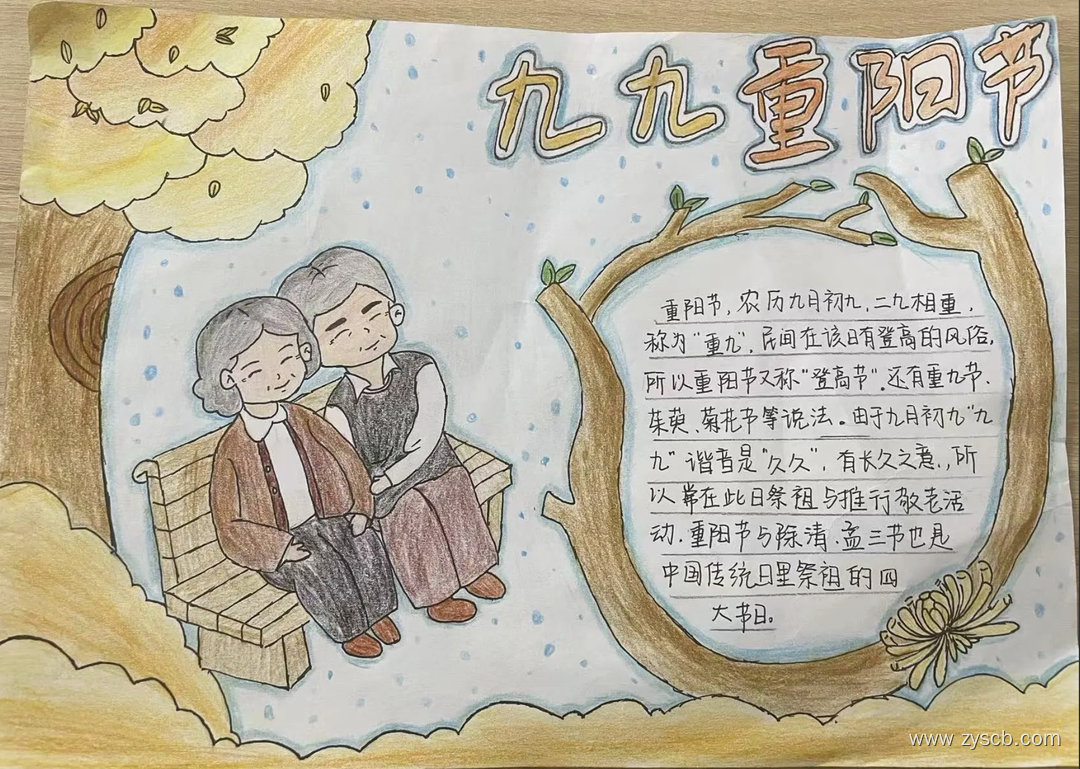 九九重阳节
重阳节，农历九月初九，二九相重，
称为“重九”，民间在该日有登高的风俗，
所以重阳节又称“登高节”。还有重九节、
茱萸、菊花节等说法。由于九月初九“九
九”谐音是“久久”，有长久之意，，所
以常在此日祭祖与推行敬老活
动．重阳节与除清、盂三节也是
中国传统日里祭祖的四
大节日。
www.zyscb.com